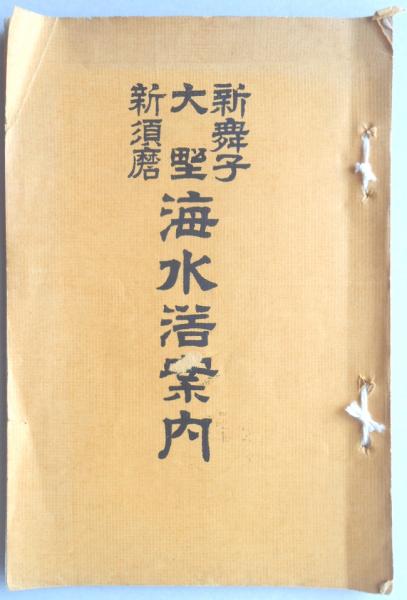 新舞子
大野海水浴案内
新須磨